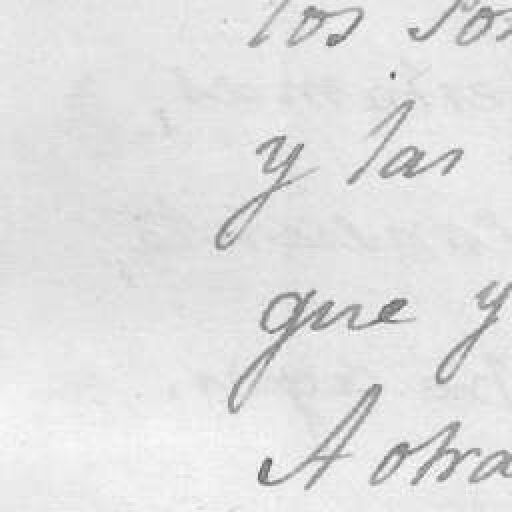 los
y las
que y
A otra